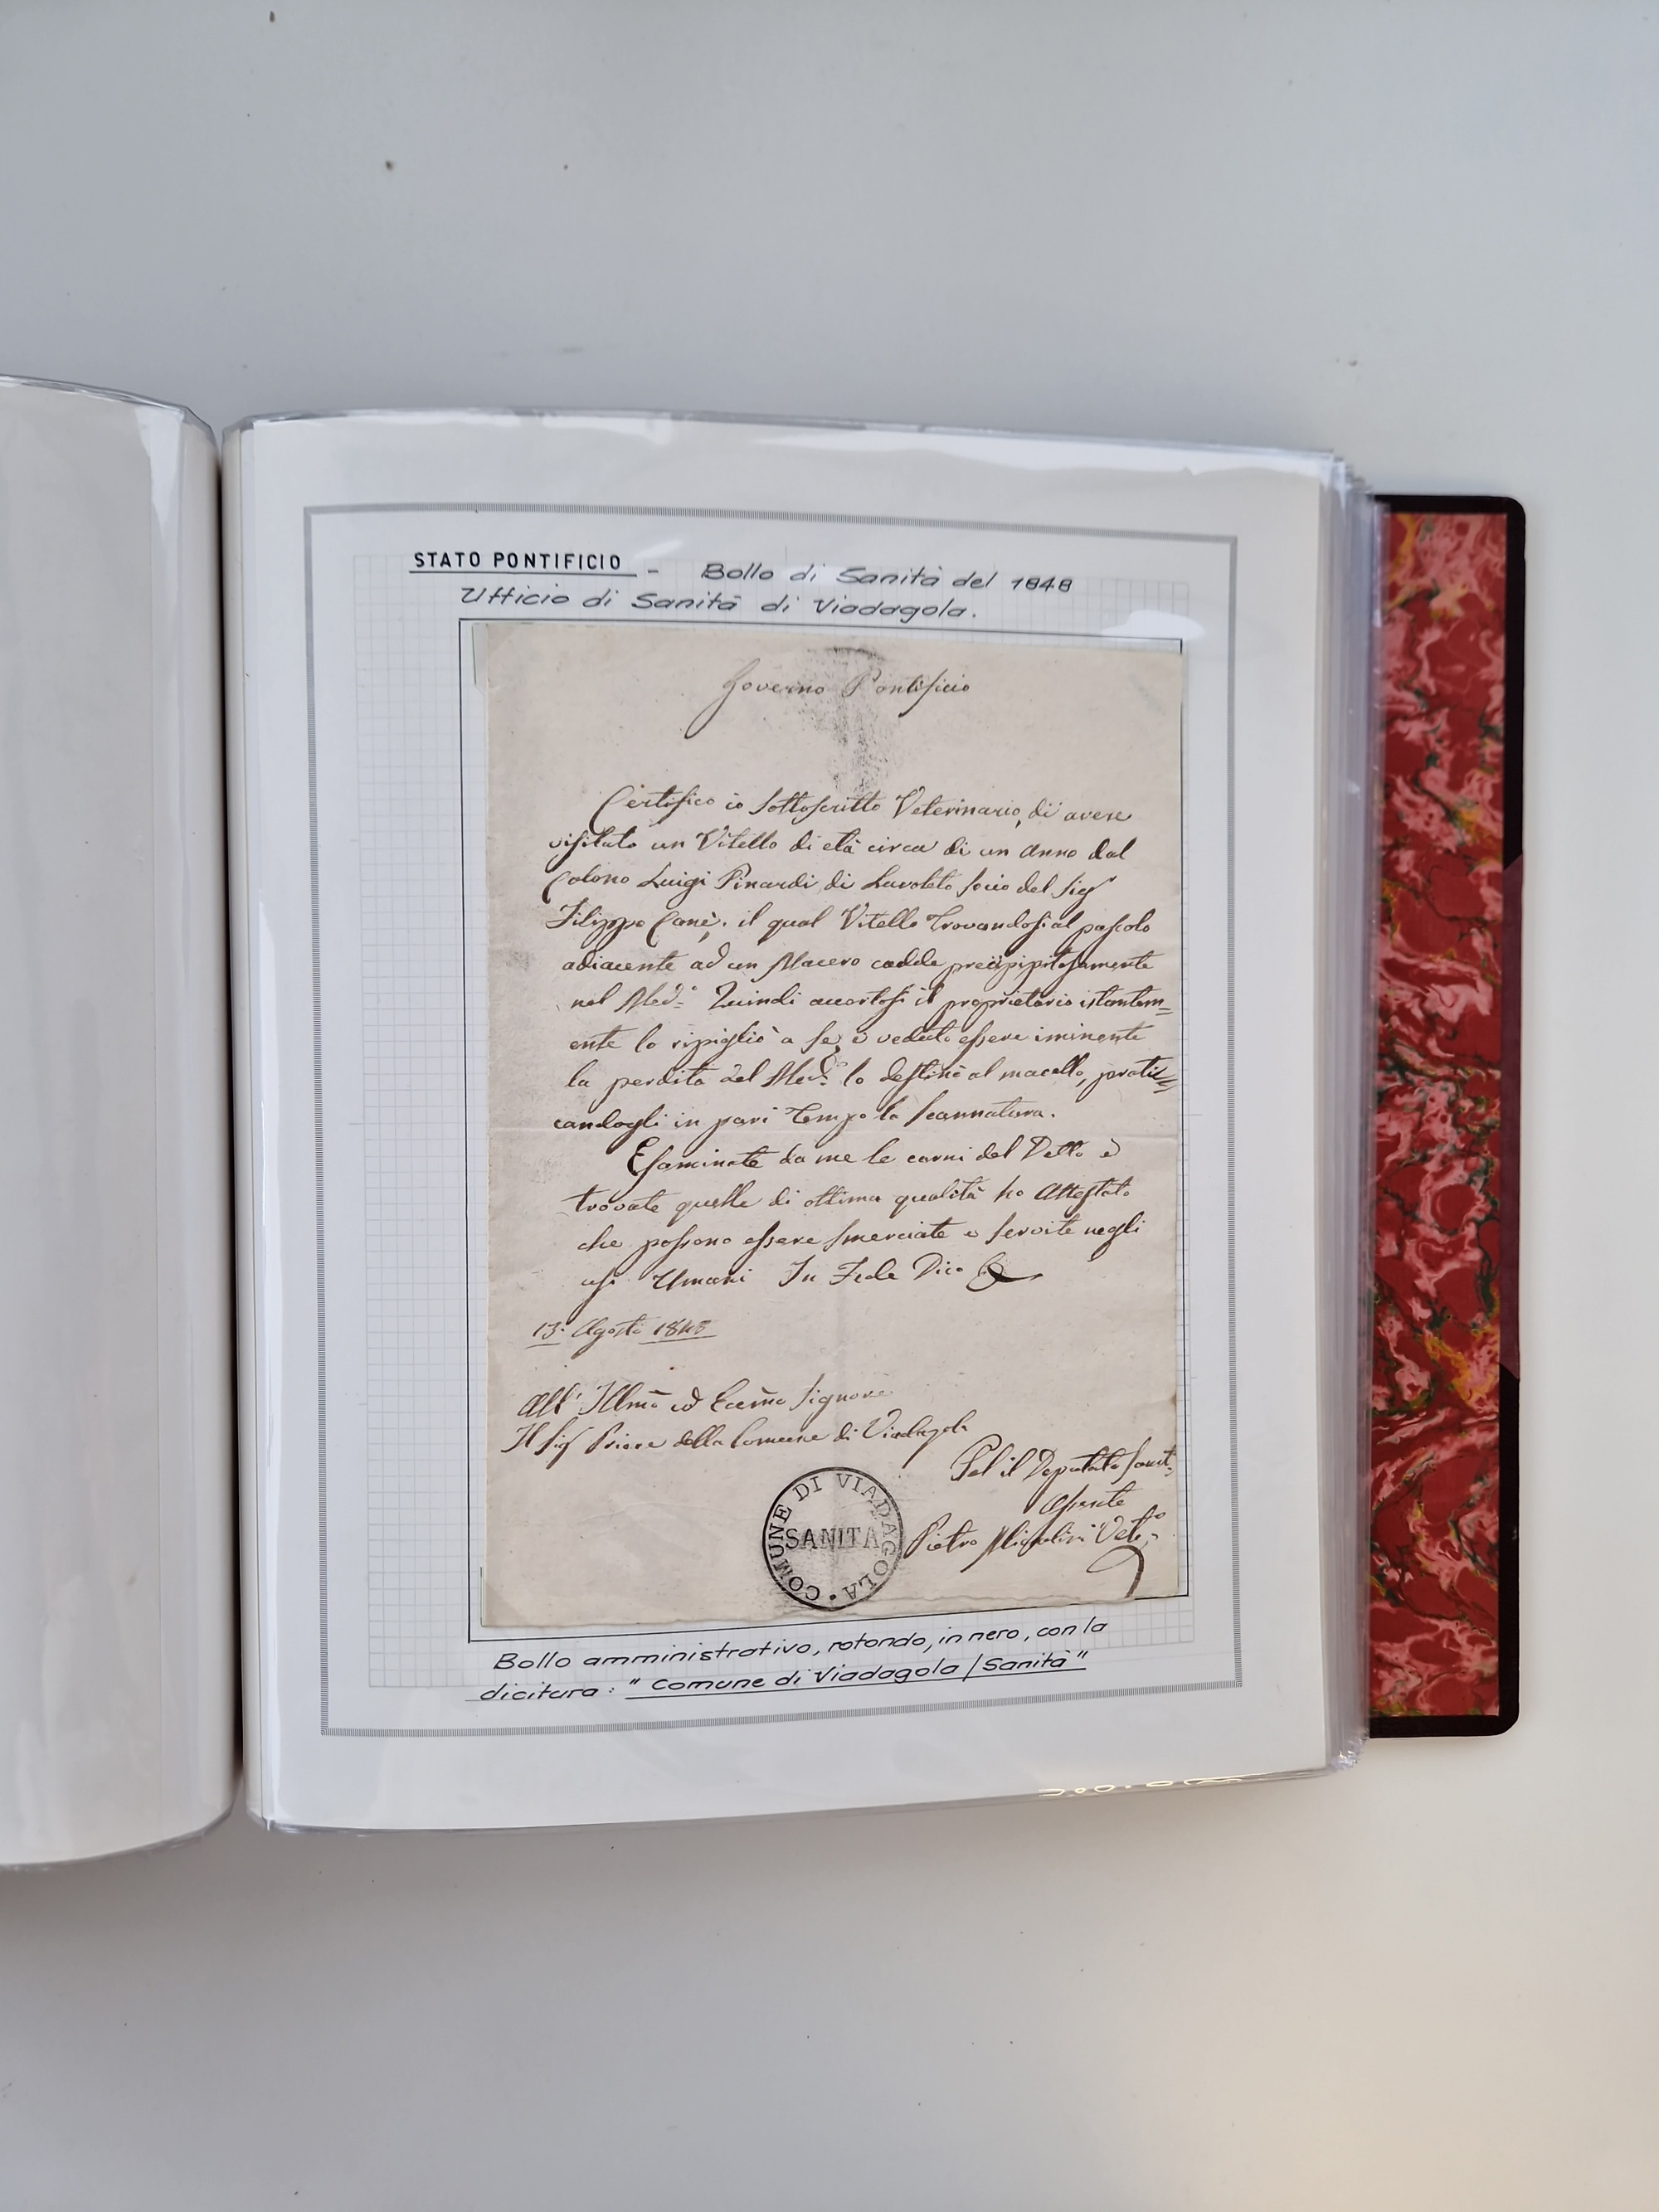 STATO PONTIFICIO - Bollo di Sanità del 1848
Ufficio di Sanità di Viadagola.
Governo Pontificio
Certifico io Sottoscritto Veterinario, di avere
visitato un Vitello di età circa di un Anno dal
Colono Luigi Pinardi di socio del Sig
Filippo Canè; il qual Vitello trovandosi al pascolo
adiacente ad un Macero cadde
nel Med.º Quindi accortosi il proprietario istantem=
ente lo ripigliò a se, e veduto essere iminente
la perdita del Med.º lo destinò al macello, pratic=
candogli in pari tempo la scannatura.
Esaminate da me le carni del Detto e
trovate quelle di ottima qualità ho Attestato
che possono essere smerciate e servite negli
usi Umani In Fede Dico
13: Agosto 1848
All' Illmo ed Eccmo Signore
Il Sig Priore della Comune di Viadagola
Pel il Deputato Sanit:
Assente
Pietro Vet.º
COMUNE DI VIADAGOLA
SANITA
Bollo amministrativo, rotondo, in nero, con la
dicitura: "Comune di Viadagola/Sanità"